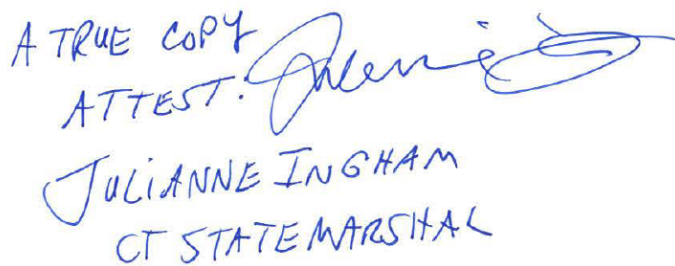 A TRUE COPY
ATTEST:
JULIANNE INGHAM
CT STATE MARSHAL